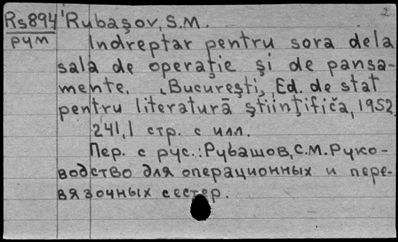 Rs894 Rubaşov, S.M. 2
рум Indreptar pentru sora dela
sala de operaţie şi de pansa-
mente. Bucureşti, Ed. de stat
pentru literatură ştiinţifică, 1952.
241,1 стр. с илл.
Пер. с рус.: Рубашов, С.М. Руко-
водство для операционных и пере-
вязочных сестер.